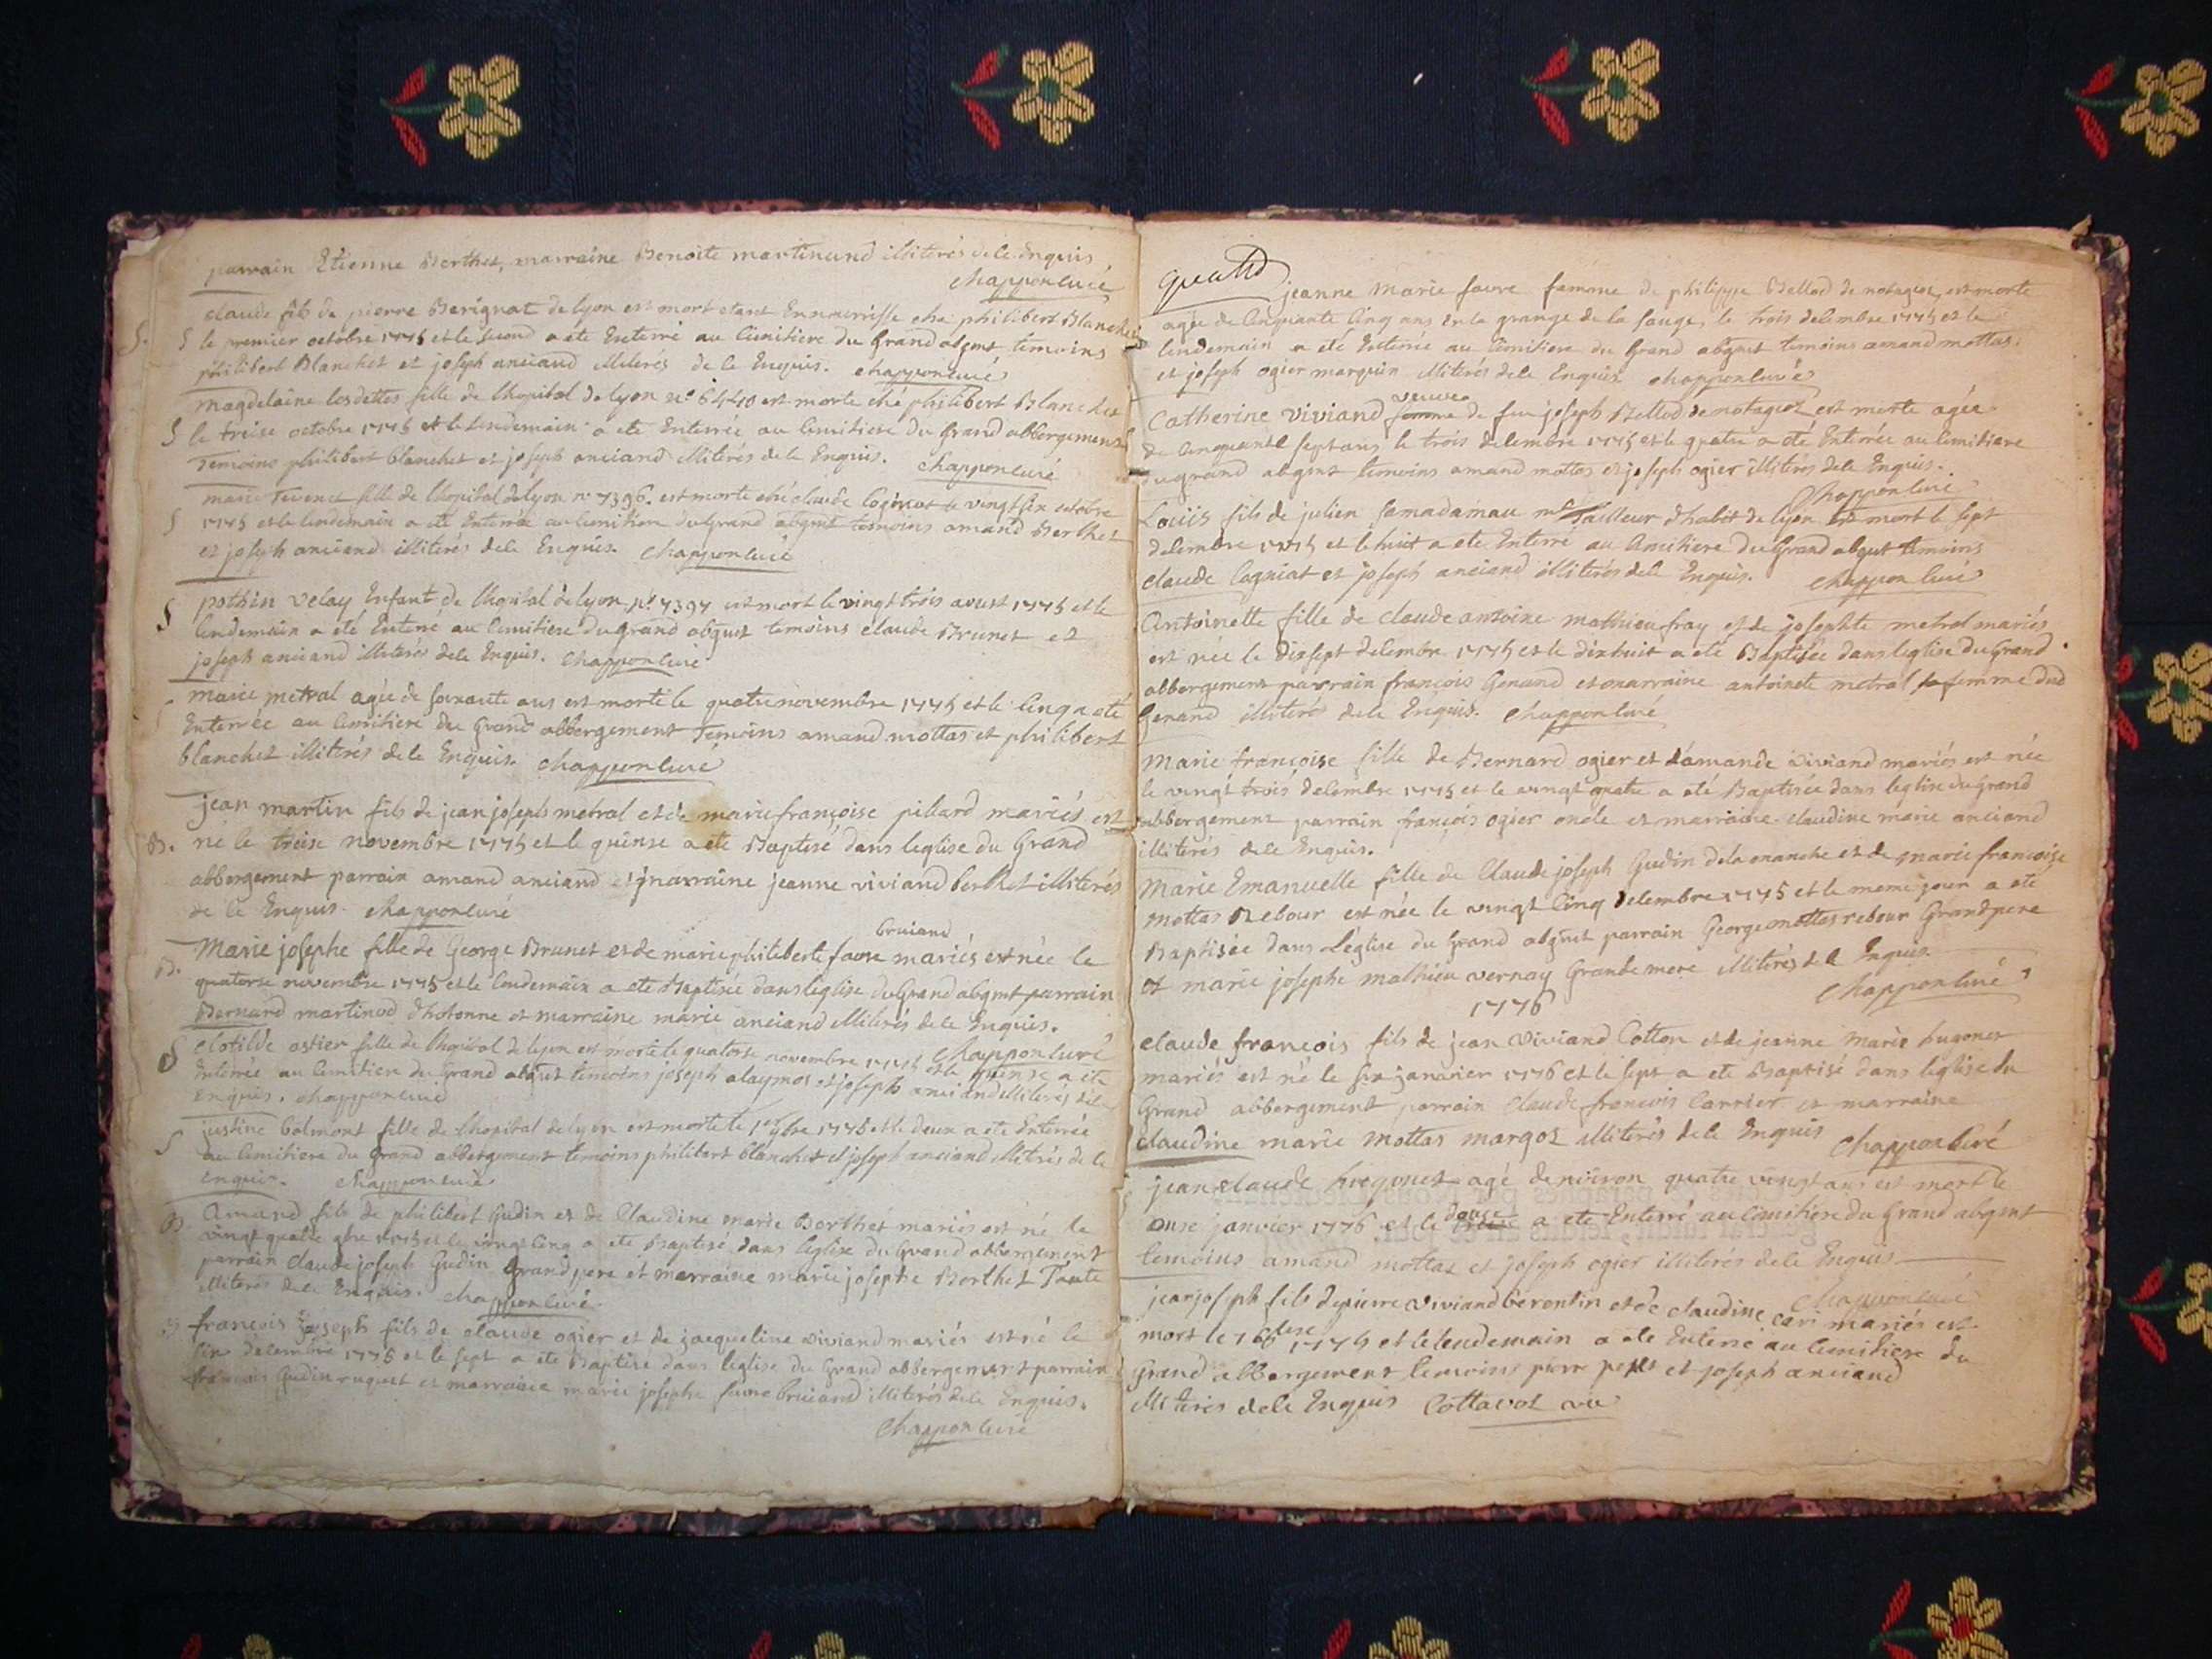 parrain Etienne Berthet, marraine Benoite martinand illiterés de le Enquis
chappon curé
claude fils de pierre Berignat de lyon est mort etant Ennourrisse ché philibert Blanchet
S le premier octobre 1775 et le second a eté Enterré au Cimitiere du Grand abgmt temoins
philibert Blanchet et joseph anciand illiterés de le Enquis. chappon curé
magdelaine fille de lhopital de lyon n° 6440 est morte ché philibert Blanchet
S le treise octobre 1775 et le lendemain a eté Enterrée au Cimitiere du Grand abbergement
Temoins philibert blanchet et joseph anciand illiterés de le Enquis. chappon curé
marie fille de lhopital de lyon n° 7396. est morte ché claude Cogniat le vingt six octobre
S 1775 et le lendemain a eté Enterrée au Cimitiere du Grand abgmt temoins amand Berthet
et joseph anciand illiterés de le Enquis. chappon curé
S pothin velay Enfant de lhopital de lyon n° 7397 est mort le vingt trois aoust 1775 et le
lendemain a eté Enterré au Cimitiere du Grand abgmt temoins claude Brunet et
joseph anciand illiterés de le Enquis. chappon curé
marie metral agée de soixante ans est morte le quatre novembre 1775 et le Cinq a eté
Enterrée au Cimitiere du Grand abbergement Temoins amand mottas et philibert
blanchet illiterés de le Enquis. chappon curé
jean martin fils de jean joseph metral et de marie françoise pillard mariés est
B. né le treise novembre 1775 et le quinse a eté Baptisé dans leglise du Grand
abbergement parrain amand anciand et marraine jeanne viviand berthet illiterés
de le Enquis. chappon curé
bruiand
Marie josephe fille de George Brunet et de marie philiberte favre mariés est née le
B. quatorse novembre 1775 et le lendemain a eté Baptisée dans leglise du Grand abgmt parrain
Bernard martinod dhotonne et marraine marie anciand illiterés de le Enquis.
chappon curé
S Clotilde ostier fille de lhopital de lyon est morte le quatorse novembre 1775 et le quinse a eté
Enterrée au Cimitiere du Grand abgmt temoins joseph alaymos et joseph anciand illiterés de le
enquis. chappon curé
S justine Colmont fille de lhopital de lyon est morte le 1er 9bre 1775 et le deux a eté Enterrée
au Cimitiere du Grand abbergement temoins philibert blanchet et joseph anciand illiterés de le
Enquis. chappon curé
B. Amand fils de philibert Gudin et de Claudine marie Berthet mariés est né le
vingt quatre 9bre 1775 et le vingt Cinq a eté Baptisé dans leglise du Grand abbergement
parrain claude joseph Gudin Grand pere et marraine marie josephe Berthet Tante
illiterés de le Enquis. chappon curé
B françois joseph fils de claude ogier et de jacqueline viviand mariés est né le
six decembre 1775 et le sept a eté Baptisé dans leglise du Grand abbergement parrain
francois Gudin ruquet et marraine marie josephe favre bruiand illiterés de le Enquis.
chappon curé
quatre
jeanne marie favre femme de philippe Bellod de notagiot, est morte
agée de Cinquante Cinq ans en la grange de la fauge, le trois decembre 1775 et le
lendemain a eté Enterrée au Cimitiere du Grand abgmt temoins amand mottas
et joseph ogier marquin illiterés de le Enquis chappon curé
veuve
Catherine viviand femme de feu joseph Bellod de notagiot est morte agée
de Cinquante sept ans le trois decembre 1775 et le quatre a eté Enterrée au Cimitiere
du grand abgmt temoins amand mottas et joseph ogier illiterés de le Enquis.
chappon curé
Loüis fils de julien Samadamau me Tailleur dhabit de lyon est mort le sept
decembre 1775 et le huit a eté Enterré au Cimitiere du Grand abgmt temoins
claude Cogniat et joseph anciand illiterés de le Enquis. chappon curé
Antoinette fille de claude antoine mathieu fray et de josephte metral mariés
est née le dix sept decembre 1775 et le dix huit a eté Baptisée dans leglise du Grand
abbergement parrain françois Genand et marraine antoinete metral sa femme dud
Genand illiterés de le Enquis. chappon curé
Marie françoise fille de Bernard ogier et damande viviand mariés est née
le vingt trois decembre 1775 et le vingt quatre a eté Baptisée dans leglise du Grand
abbergement parrain françois ogier oncle et marraine claudine marie anciand
illiterés de le Enquis.
Marie Emanuelle fille de Claude joseph Gudin dela manche et de marie françoise
Mottas Rebour est née le vingt Cinq decembre 1775 et le meme jour a eté
Baptisée dans Léglise du Grand abgmt parrain George mottas rebour Grand pere
et marie josephe mathieu vernay Grande mere illiterés de le Enquis.
1776 chappon curé
claude françois fils de jean viviand Cotton et de jeanne marie hugonet
mariés est né le six janvier 1776 et le sept a eté Baptisé dans leglise du
Grand abbergement parrain Claude francois Carrier et marraine
claudine marie Mottas margot illiterés de le Enquis chappon Curé
jean claude hugonet agé denviron quatre vingt ans est mort le
douse
onse janvier 1776 et le a eté Enterré au Cimitiere du Grand abgmt
temoins amand mottas et joseph ogier illiterés de le Enquis
chappon curé
jean joseph fils de pierre viviand berentin et de claudine Cari mariés est
mort le 7 1775 et le lendemain a eté Enterré au Cimitiere du
Grand abbergement temoins pierre et joseph anciand
illiterés de le Enquis Cottavoz vic